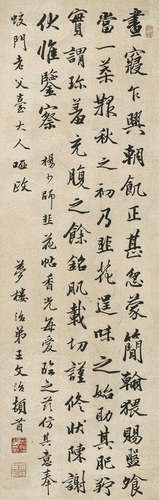 晝寢乍興朝飢正甚忽蒙簡翰猥賜盤飧
當一葉報秋之初乃韭花逞味之始助其肥羜
實謂珍羞充腹之餘銘肌載切謹修狀陳謝
伏惟鑒察 楊少師韭花帖香光每愛臨之茲仿其意奉
蛟門老父臺大人 政
夢樓治弟王文治頓首